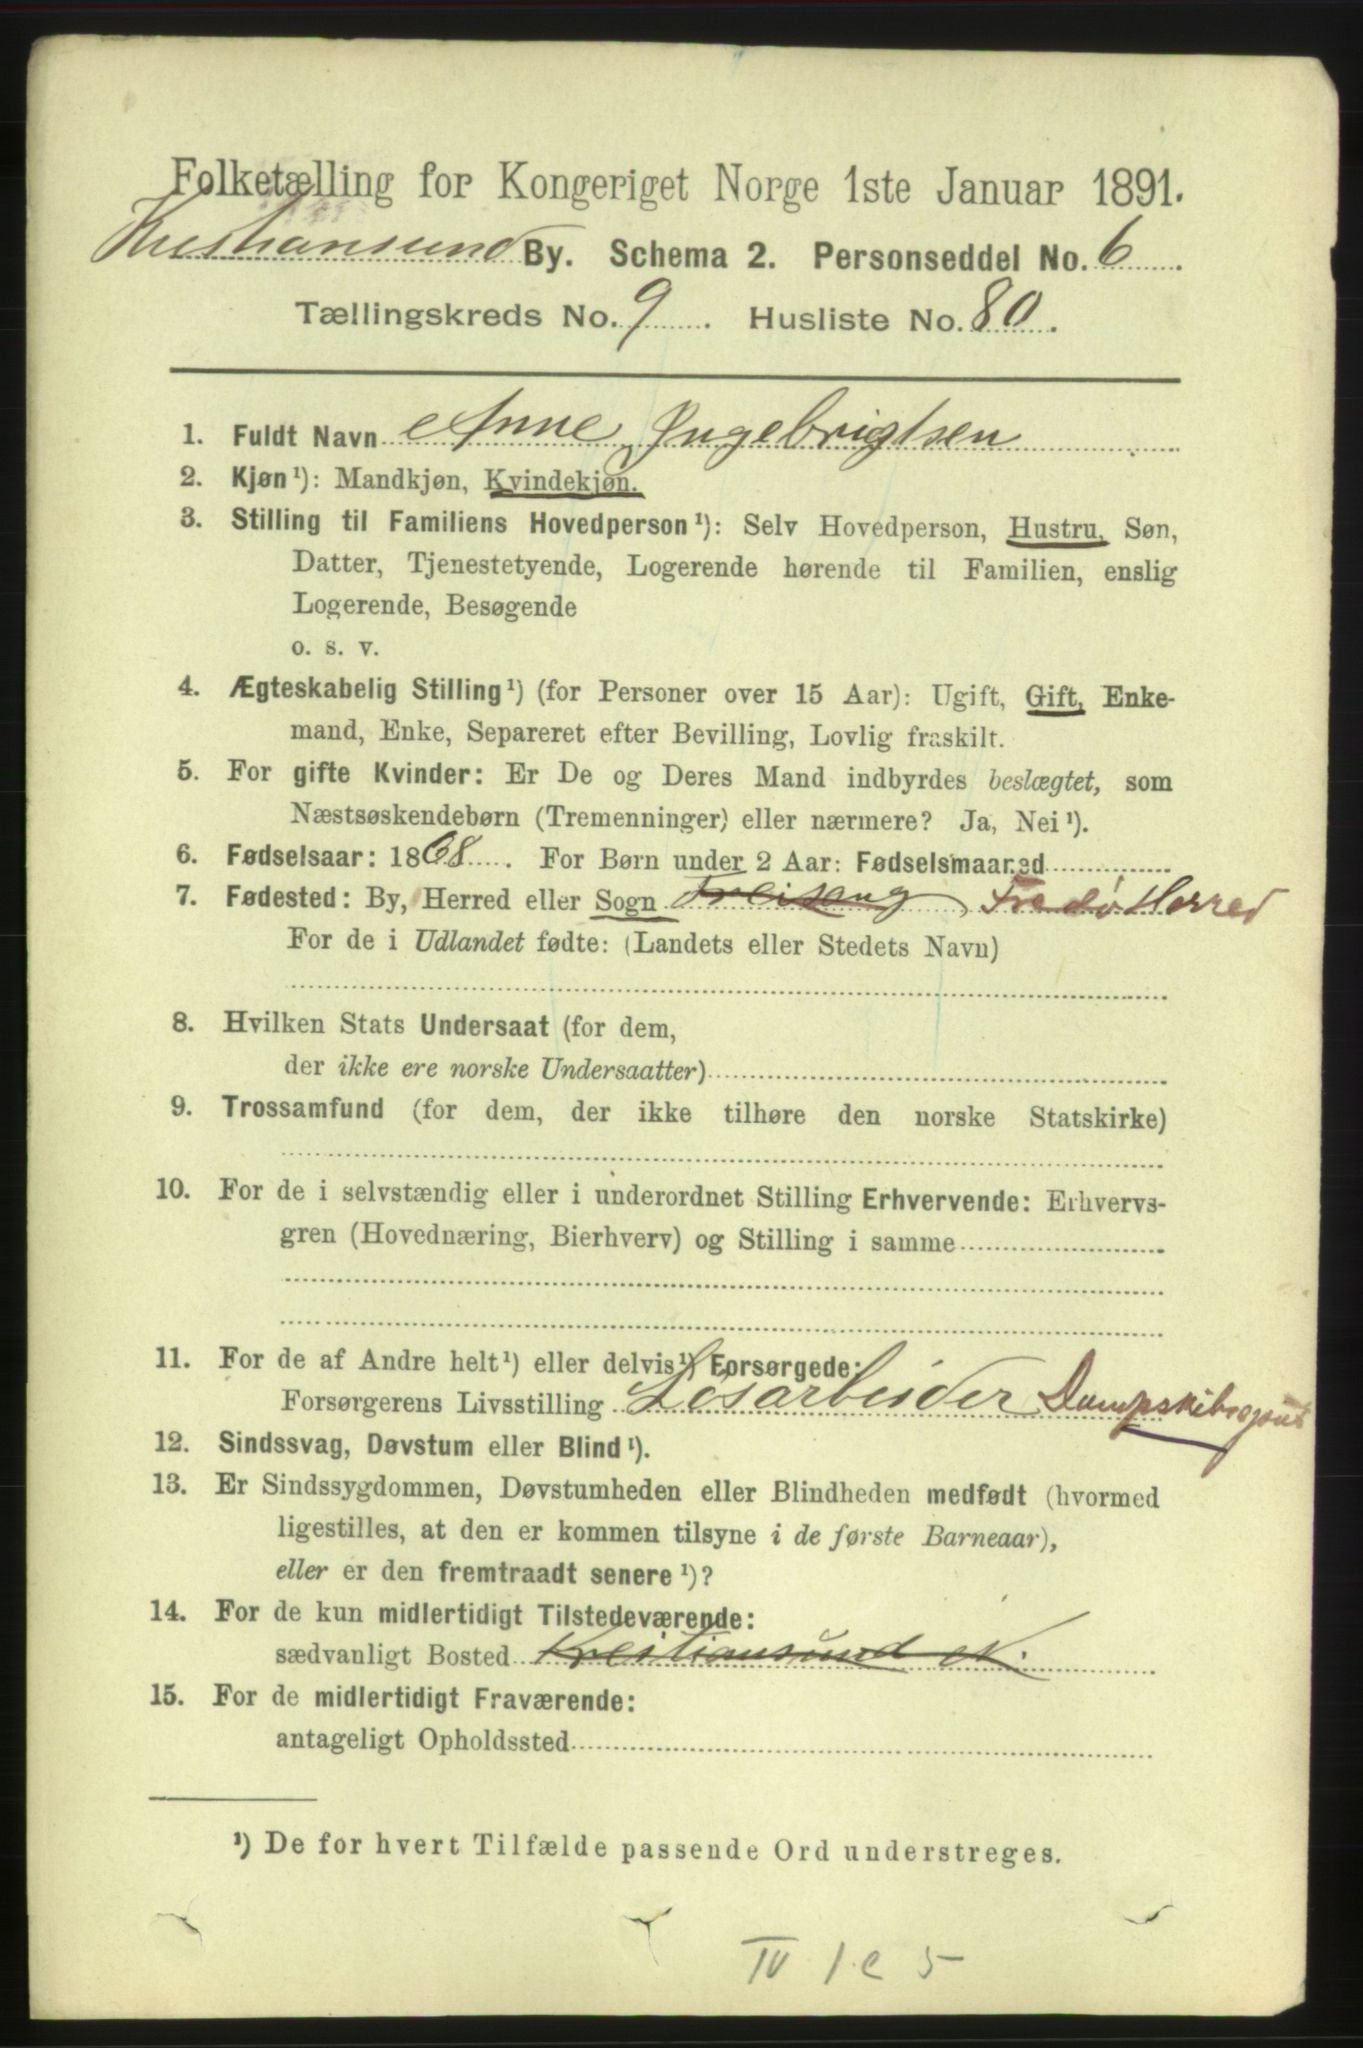 Folketælling for Kongeriget Norge 1ste Januar 1891.
Kristiansund By. Schema 2. Personseddel No. 6
Tællingskreds No. 9. Husliste No. 80.
1. Fuldt Navn Anne Ingebrigtsen
2. Kjøn¹): Mandkjøn, Kvindekjøn.
3. Stilling til Familiens Hovedperson¹): Selv Hovedperson, Hustru, Søn,
Datter, Tjenestetyende, Logerende hørende til Familien, enslig
Logerende, Besøgende
o. s. v.
4. Ægteskabelig Stilling¹) (for Personer over 15 Aar): Ugift, Gift, Enke-
mand, Enke, Separeret efter Bevilling, Lovlig fraskilt.
5. For gifte Kvinder: Er De og Deres Mand indbyrdes beslægtet, som
Næstsøskendebørn (Tremenninger) eller nærmere? Ja, Nei¹).
6. Fødselsaar: 1868. For Børn under 2 Aar: Fødselsmaaned
7. Fødested: By, Herred eller Sogn Fredø Herred
For de i Udlandet fødte: (Landets eller Stedets Navn)
8. Hvilken Stats Undersaat (for dem,
der ikke ere norske Undersaatter)
9. Trossamfund (for dem, der ikke tilhøre den norske Statskirke)
10. For de i selvstændig eller i underordnet Stilling Erhvervende: Erhvervs-
gren (Hovednæring, Bierhverv) og Stilling i samme
11. For de af Andre helt¹) eller delvis¹) Forsørgede:
Forsørgerens Livsstilling Løsarbeider
12. Sindssvag, Døvstum eller Blind¹).
13. Er Sindssygdommen, Døvstumheden eller Blindheden medfødt (hvormed
ligestilles, at den er kommen tilsyne i de første Barneaar),
eller er den fremtraadt senere¹)?
14. For de kun midlertidigt Tilstedeværende:
sædvanligt Bosted Kristiansund N.
15. For de midlertidigt Fraværende:
antageligt Opholdssted
¹) De for hvert Tilfælde passende Ord understreges.
IV 1 e 5